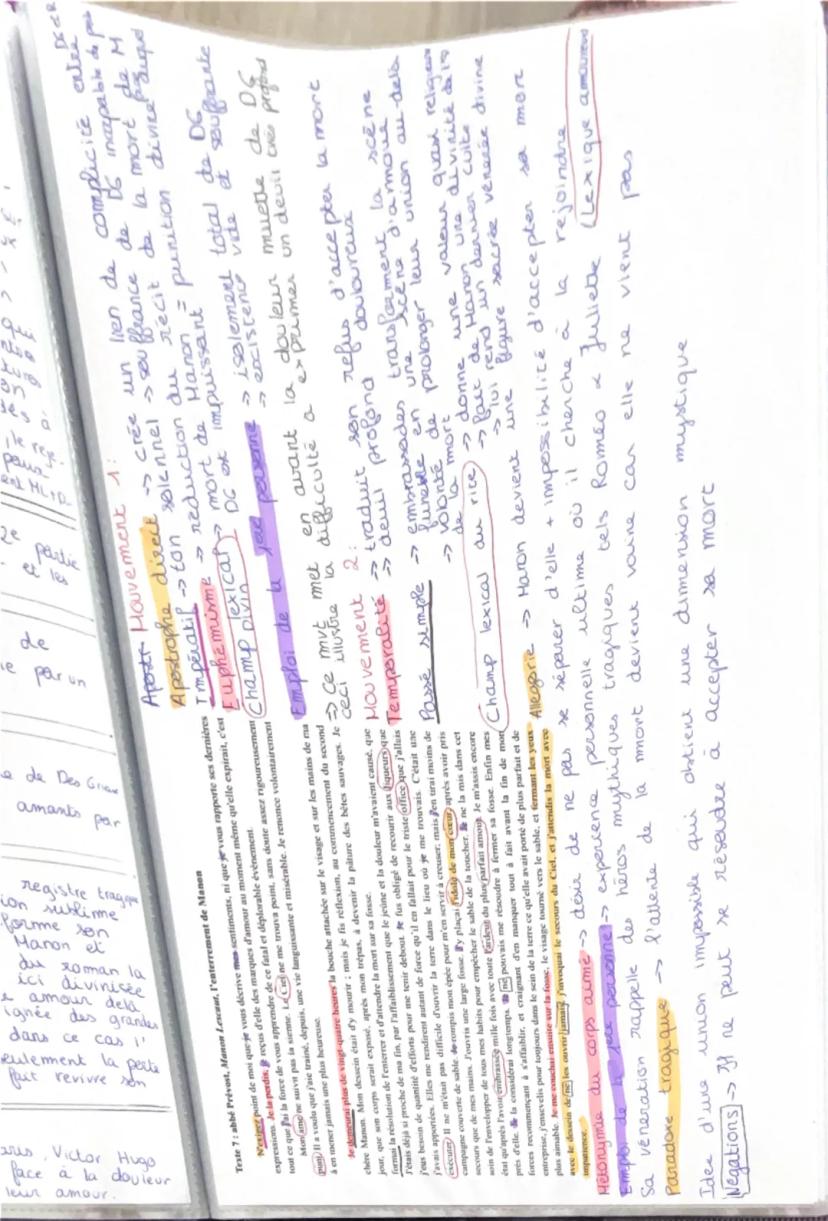 de
par un
de Des Grieux
amants par
registre tragique
ion sublime
forme son
Manon et
du roman la
ici divinisée
amour delà
ignée des grandes
dans ce cas
seulement la perte
fait revivre son
Victor Hugo
face à la douleur
leur amour.
2e partie
et les
Texte 7 : abbé Prévost, Manon Lescaut, l'enterrement de Manon
N'exigez point de moi que je vous décrive mes sentiments, ni que je vous rapporte ses dernières
expressions. Je la perdis, je reçus d'elle des marques d'amour au moment même qu'elle expirait, c'est
tout ce que j'ai la force de vous apprendre de ce fatal et déplorable événement.
Mon âme ne suivit pas la sienne. Le Ciel ne me trouva point, sans doute assez rigoureusement
puni. Il a voulu que j'aie traîné, depuis, une vie languissante et misérable. Je renonce volontairement
à en mener jamais une plus heureuse.
Je demeurai plus de vingt-quatre heures la bouche attachée sur le visage et sur les mains de ma
chère Manon. Mon dessein était d'y mourir ; mais je fis réflexion, au commencement du second
jour, que son corps serait exposé, après mon trépas, à devenir la pâture des bêtes sauvages. Je
formai la résolution de l'enterrer et d'attendre la mort sur sa fosse.
J'étais déjà si proche de ma fin, par l'affaiblissement que le jeûne et la douleur m'avaient causé, que
j'eus besoin de quantité d'efforts pour me tenir debout. Je fus obligé de recourir aux liqueurs que
j'avais apportées. Elles me rendirent autant de force qu'il en fallait pour le triste office que j'allais
exécuter. Il ne m'était pas difficile d'ouvrir la terre dans le lieu où je me trouvais. C'était une
campagne couverte de sable. Je rompis mon épée pour m'en servir à creuser, mais j'en tirai moins de
secours que de mes mains. J'ouvris une large fosse. J'y plaçai l'idole de mon cœur, après avoir pris
soin de l'envelopper de tous mes habits pour empêcher le sable de la toucher. Je ne la mis dans cet
état qu'après l'avoir embrassée mille fois avec toute l'ardeur du plus parfait amour. Je m'assis encore
près d'elle. Je la considérai longtemps. Je ne pouvais me résoudre à fermer sa fosse. Enfin mes
forces recommençant à s'affaiblir, et craignant d'en manquer tout à fait avant la fin de mon
entreprise, j'ensevelis pour toujours dans le sein de la terre ce qu'elle avait porté de plus parfait et de
plus aimable. Je me couchai ensuite sur la fosse, le visage tourné vers le sable, et fermant les yeux
avec le dessein de ne les ouvrir jamais, j'invoquai le secours du Ciel, et j'attendis la mort avec
impatience.
Apostr Mouvement 1 :
Apostrophe direct -> crée un lien de complicité entre
Impératif -> ton solennel -> souffrance de DG incapable de
Euphémisme -> réduction du récit de la mort de M
Champ lexical divin -> mort de Manon = punition divine
DG est impuissant
Emploi de la 1ere personne -> isolement total de DG
-> existence vide et souffrante
=> Ce mvt met en avant la douleur muette de DG
ceci illustre la difficulté à exprimer un deuil très profond
Mouvement 2 :
Temporalité -> traduit son refus d'accepter la mort
-> deuil profond douloureux
Passé simple -> embrassades transforment la scène
funèbre en une scène d'amour
-> volonté de prolonger leur union au-delà
de la mort
Champ lexical du rite -> donne une valeur quasi religieuse
-> fait de Manon une divinité
-> lui rend un dernier culte
Allégorie -> Manon devient une figure sacrée vénérée divine
Métonymie du corps aimé -> désir de ne pas se séparer d'elle + impossibilité d'accepter sa mort
Emploi de la 1ere personne -> expérience personnelle ultime où il cherche à la rejoindre
Sa vénération rappelle des héros mythiques tragiques tels Roméo & Juliette (Lexique amoureux
Paradoxe tragique -> l'attente de la mort devient vaine car elle ne vient pas
Idée d'une union impossible qui obtient une dimension mystique
Négations -> Il ne peut se résoudre à accepter sa mort